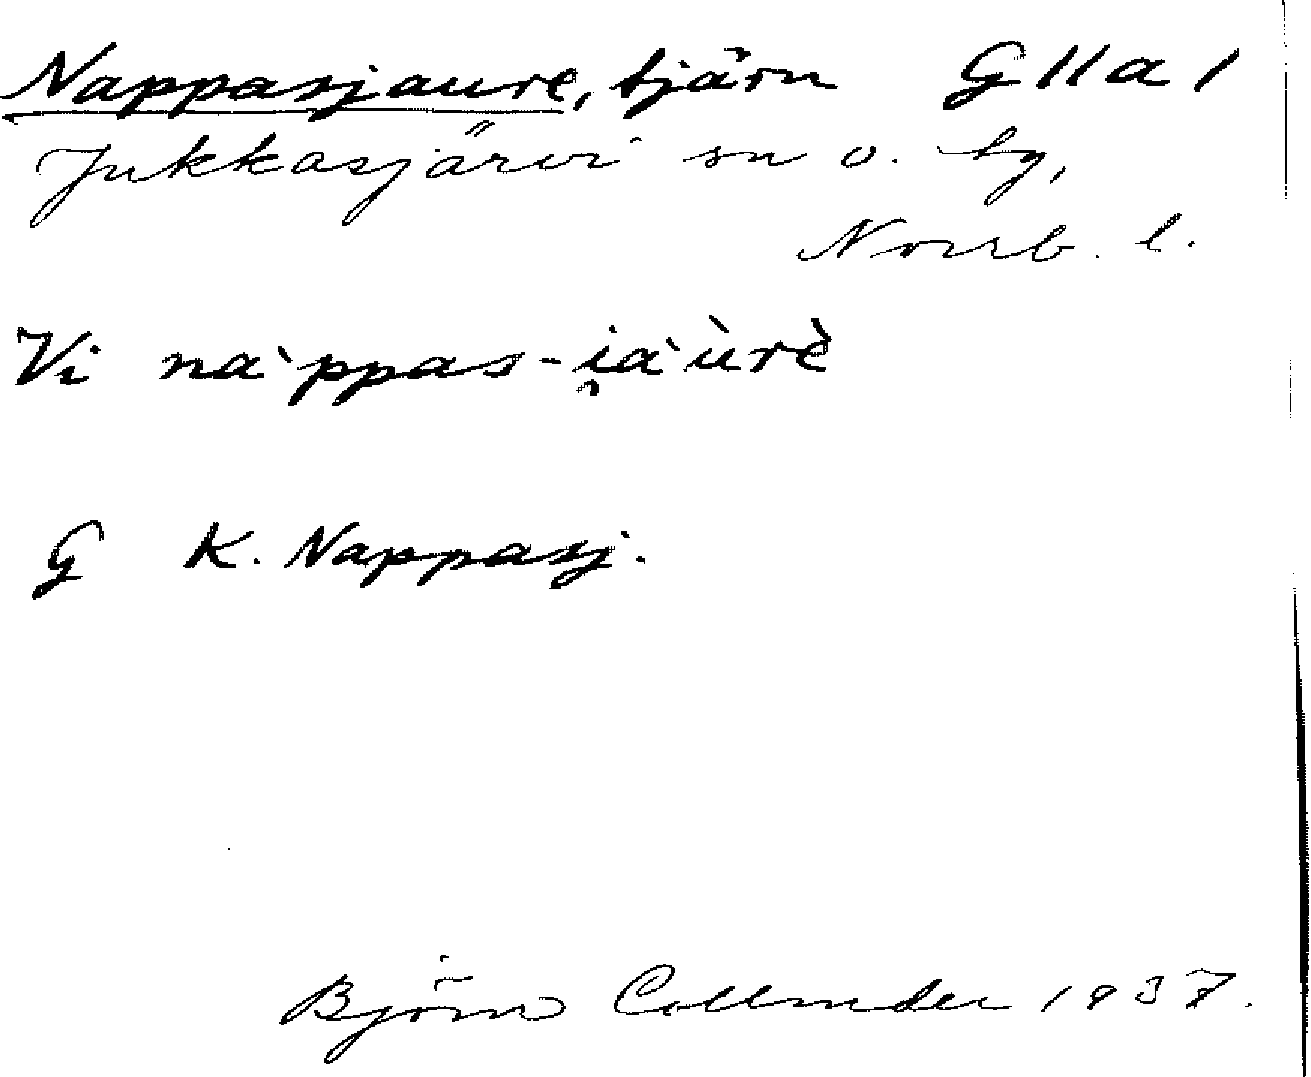 Nappasjaure, tjärn G 11 a 1
Jukkasjärvi sn o. by,
Norrb. l.
Vi na`ppas-i̯a`ùrè
G K. Nappasj.
Björn Collinder 1937.